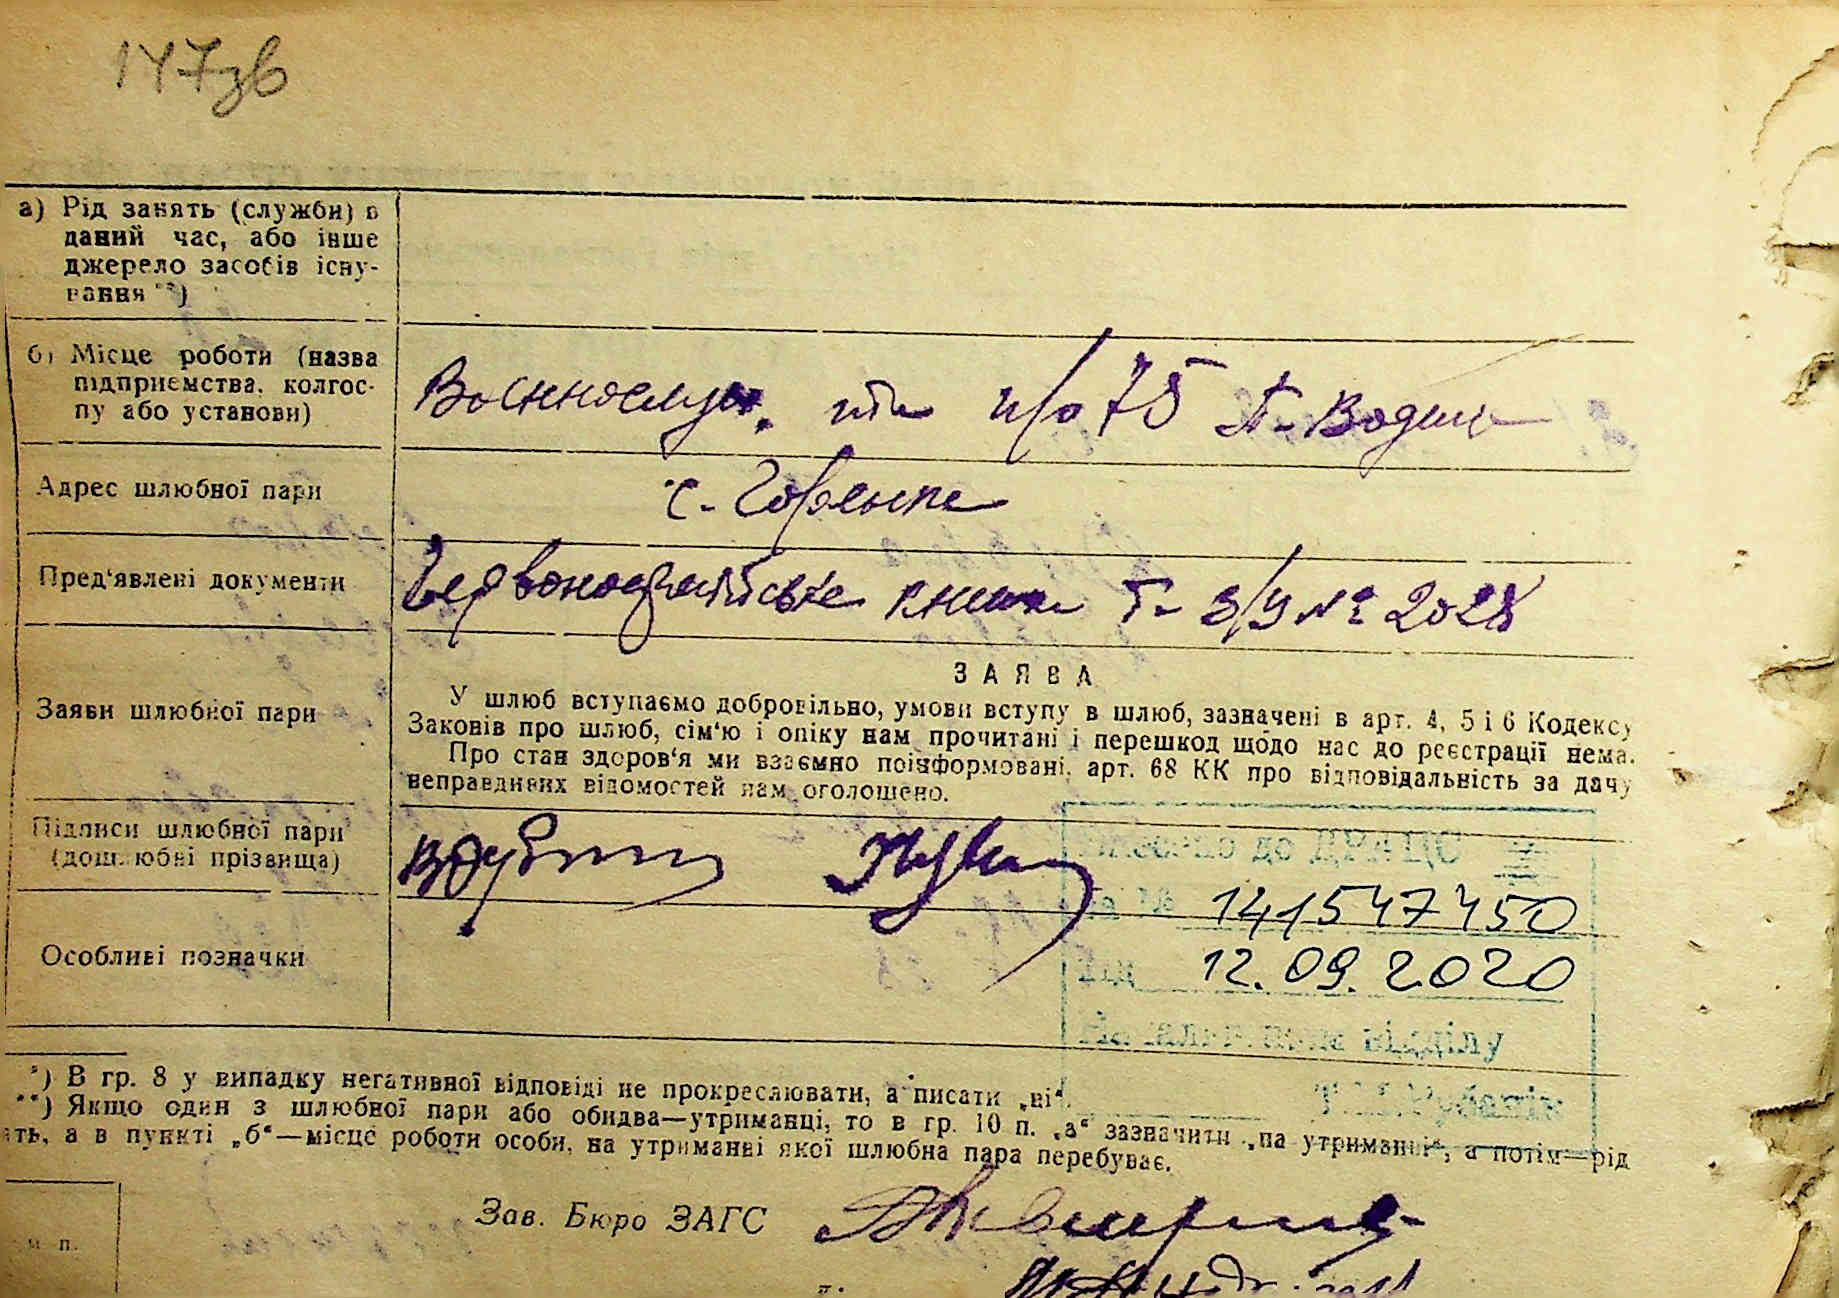 147зв
а) Рід занять (служби) в
даний час, або інше
джерело засобів існу-
вання **)
б) Місце роботи (назва
підприємства, колгос-
пу або установи)
п/о 75
Адрес шлюбної пари
с.
Пред‘явлені документи
Червоноармійська книжка № 2028
Заяви шлюбної пари
ЗАЯВА
У шлюб вступаємо добровільно, умови вступу в шлюб, зазначені в арт. 4, 5 і 6 Кодексу
Законів про шлюб, сім‘ю і опіку нам прочитані і перешкод щодо нас до реєстрації нема.
Про стан здоров‘я ми взаємно поінформовані, арт. 68 КК про відповідальність за дачу
неправдивих відомостей нам оголошено.
Підписи шлюбної пари
(дошлюбні прізвища)
Внесено до ДРАЦС
За № 141547450
Від 12.09.2020
Начальник відділу
Особливі позначки
*) В гр. 8 у випадку негативної відповіді не прокреслювати, а писати „ні“.
**) Якщо один з шлюбної пари або обидва—утриманці, то в гр. 10 п. „а“ зазначити „на утриманні“, а потім—рід
ять, а в пункті „б“—місце роботи особи, на утриманні якої шлюбна пара перебуває.
Зав. Бюро ЗАГС
м. п.